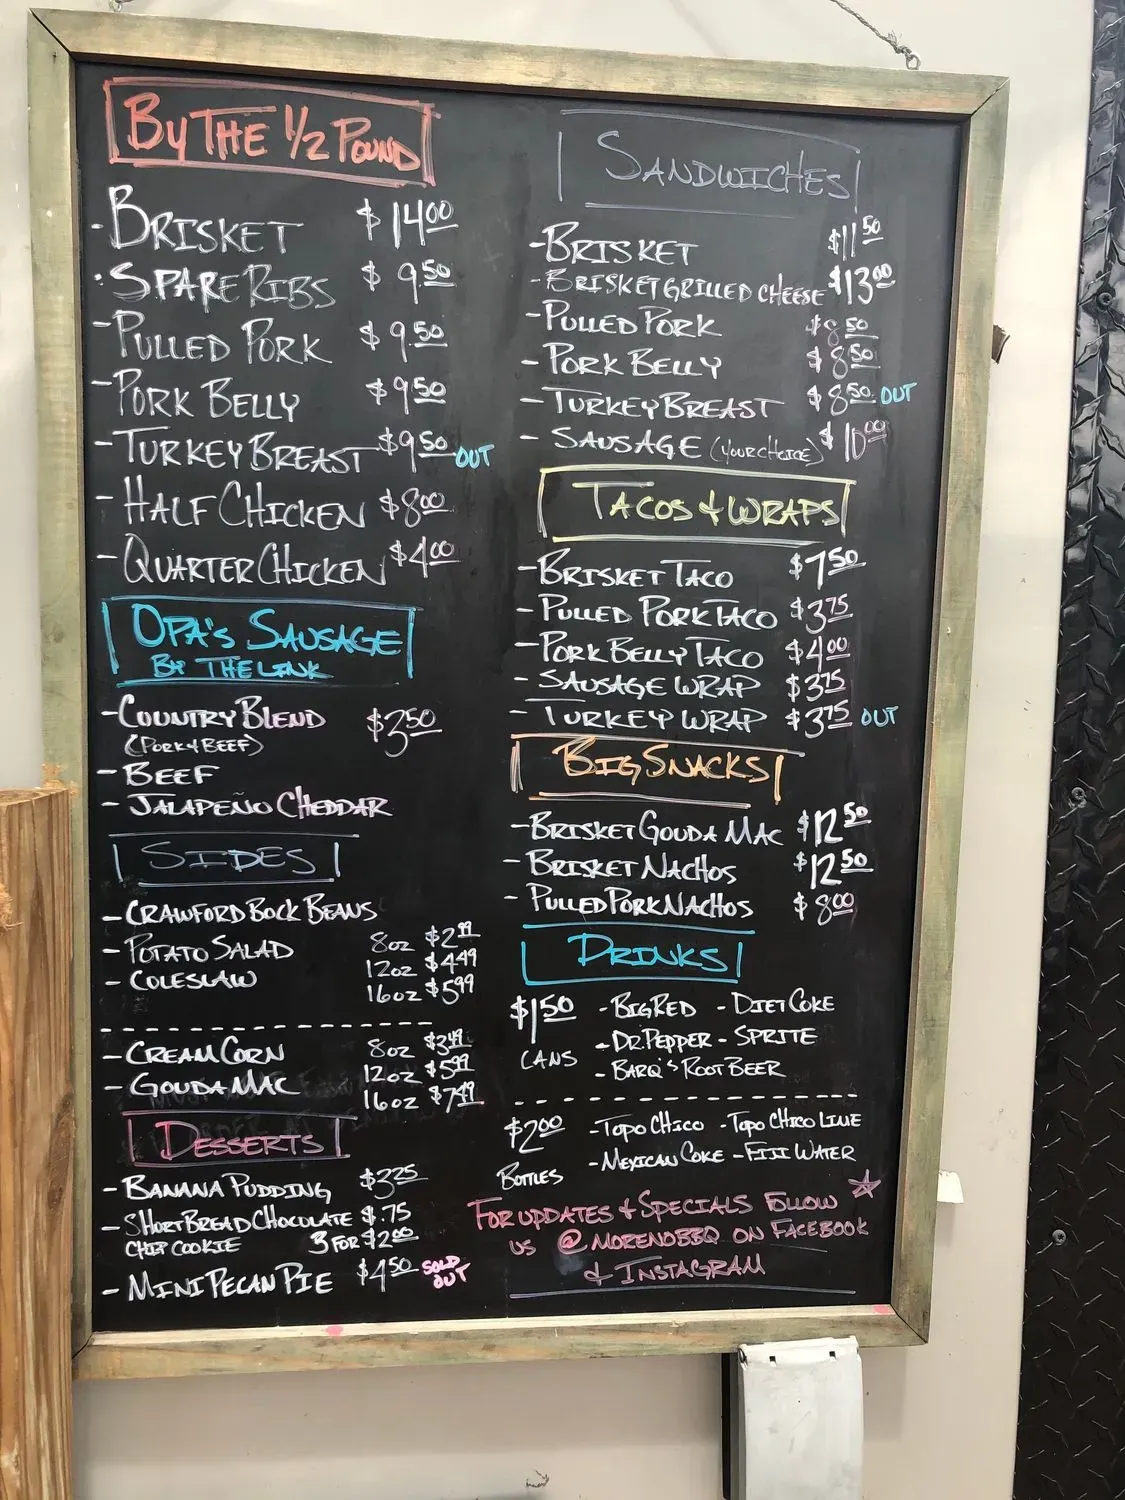 By The 1/2 Pound
- Brisket $14.00
- Spare Ribs $9.50
- Pulled Pork $9.50
- Pork Belly $9.50
- Turkey Breast $9.50 OUT
- Half Chicken $8.00
- Quarter Chicken $4.00
Opa's Sausage
By The Link
- Country Blend $3.50
(Pork & Beef)
- Beef
- Jalapeño Cheddar
Sides
- Crawford Bock Beans
- Potato Salad 8oz $2.99
- Coleslaw 12oz $4.49
16oz $5.99
- Cream Corn 8oz $3.49
- Gouda Mac 12oz $5.99
16oz $7.49
Desserts
- Banana Pudding $3.25
- Short Bread Chocolate $.75
Chip Cookie 3 for $2.00
- Mini Pecan Pie $4.50 SOLD OUT
Sandwiches
- Brisket $11.50
- Brisket Grilled Cheese $13.00
- Pulled Pork $8.50
- Pork Belly $8.50
- Turkey Breast $8.50 OUT
- Sausage (Your Choice) $10.00
Tacos & Wraps
- Brisket Taco $7.50
- Pulled Pork Taco $3.75
- Pork Belly Taco $4.00
- Sausage Wrap $3.75
- Turkey Wrap $3.75 OUT
Big Snacks
- Brisket Gouda Mac $12.50
- Brisket Nachos $12.50
- Pulled Pork Nachos $8.00
Drinks
$1.50 - Big Red - Diet Coke
Cans - Dr. Pepper - Sprite
- Barq's Root Beer
$2.00 - Topo Chico - Topo Chico Lime
Bottles - Mexican Coke - Fiji Water
For Updates & Specials Follow
us @MorenoBBQ on Facebook
& Instagram